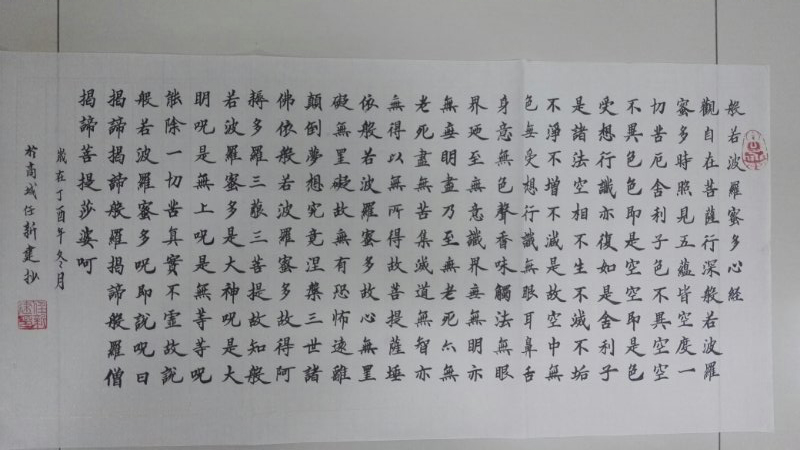 般若波羅蜜多心經
觀自在菩薩行深般若波羅
蜜多時照見五蘊皆空度一
切苦厄舍利子色不異空空
不異色色即是空空即是色
受想行識亦復如是舍利子
是諸法空相不生不滅不垢
不淨不增不減是故空中無
色無受想行識無眼耳鼻舌
身意無色聲香味觸法無眼
界乃至無意識界無無明亦
無無明盡乃至無老死亦無
老死盡無苦集滅道無智亦
無得以無所得故菩提薩埵
依般若波羅蜜多故心無罣
礙無罣礙故無有恐怖遠離
顛倒夢想究竟涅槃三世諸
佛依般若波羅蜜多故得阿
耨多羅三藐三菩提故知般
若波羅蜜多是大神呪是大
明呪是無上呪是無等等呪
能除一切苦真實不虛故說
般若波羅蜜多呪即說呪曰
揭諦揭諦般羅揭諦般羅僧
揭諦菩提莎婆呵
歲在丁酉年冬月
於商城任新建抄